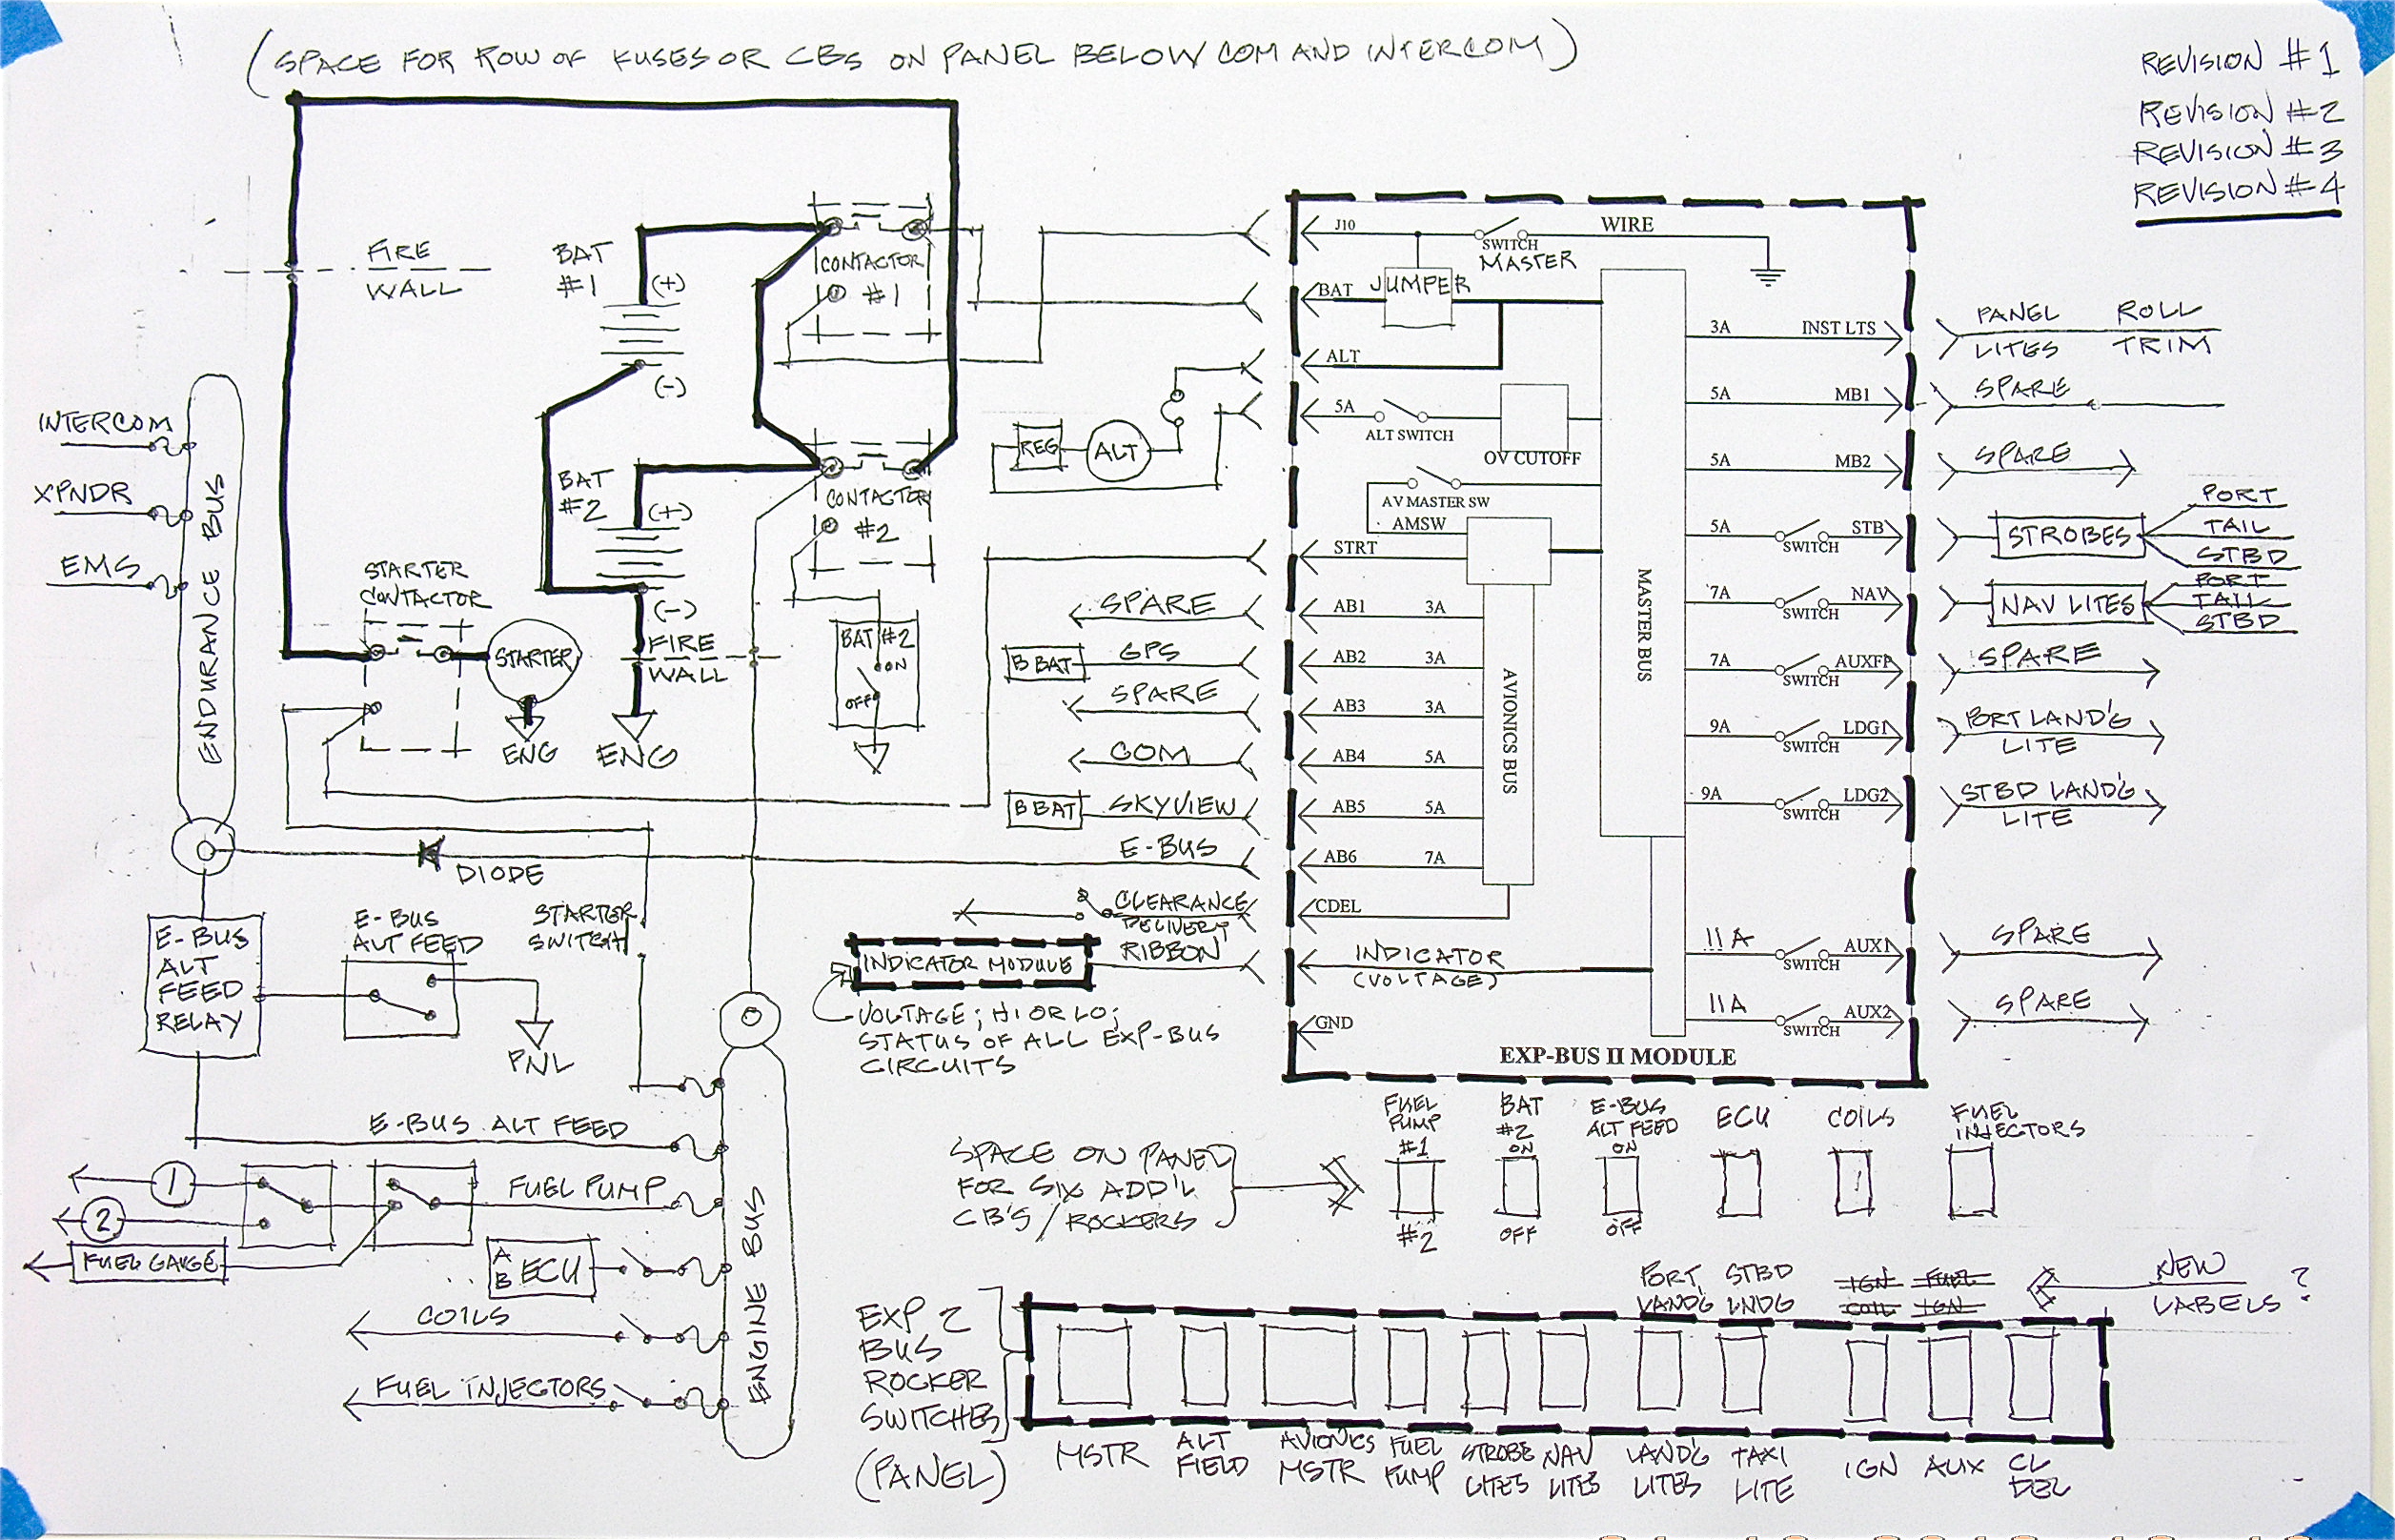 (SPACE FOR ROW OF FUSES OR CBS ON PANEL BELOW COM AND INTERCOM)
REVISION #1
REVISION #2
REVISION #3
REVISION #4
FIRE
WALL
BAT
#1
(+)
(-)
CONTACTOR
#1
BAT
#2
(+)
(-)
CONTACTOR
#2
FIRE
WALL
BAT #2
ON
OFF
INTERCOM
XPNDR
EMS
ENDURANCE BUS
STARTER
CONTACTOR
STARTER
ENG
ENG
REG
ALT
SPARE
B BAT GPS
SPARE
COM
B BAT SKYVIEW
E-BUS
CLEARANCE
DELIVERY
RIBBON
INDICATOR MODULE
VOLTAGE; HI OR LO;
STATUS OF ALL EXP-BUS
CIRCUITS
DIODE
E-BUS
ALT
FEED
RELAY
E-BUS
ALT FEED
PNL
STARTER
SWITCH
E-BUS ALT FEED
1
2
FUEL PUMP
FUEL GAUGE
A
B
ECU
COILS
FUEL INJECTORS
ENGINE BUS
J10
SWITCH
MASTER
WIRE
BAT
JUMPER
ALT
5A
ALT SWITCH
OV CUTOFF
AV MASTER SW
AMSW
STRT
AB1 3A
AB2 3A
AB3 3A
AB4 5A
AB5 5A
AB6 7A
CDEL
INDICATOR
(VOLTAGE)
GND
AVIONICS BUS
MASTER BUS
3A INST LTS
5A MB1
5A MB2
5A SWITCH STB
7A SWITCH NAV
7A SWITCH AUXFP
9A SWITCH LDG1
9A SWITCH LDG2
11A SWITCH AUX1
11A SWITCH AUX2
EXP-BUS II MODULE
PANEL ROLL
LITES TRIM
SPARE
SPARE
STROBES
PORT
TAIL
STBD
NAV LITES
PORT
TAIL
STBD
SPARE
PORT LAND'G
LITE
STBD LAND'G
LITE
SPARE
SPARE
SPACE ON PANEL
FOR SIX ADD'L
CB'S/ROCKERS
FUEL
PUMP
#1
#2
BAT
#2
ON
OFF
E-BUS
ALT FEED
ON
OFF
ECU
COILS
FUEL
INJECTORS
EXP 2
BUS
ROCKER
SWITCHES
(PANEL)
PORT
LANDG
STBD
LNDG
IGN
COIL
FUEL
IGN
NEW
LABELS?
MSTR
ALT
FIELD
AVIONICS
MSTR
FUEL
PUMP
STROBE
LITES
NAV
LITES
LAND'G
LITES
TAXI
LITE
IGN
AUX
CL
DEL